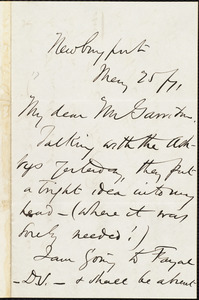 Newburyport
May 25/71.
My dear Mr Garrison.
Talking with the Ash-
bys yesterday, they put
a bright idea into my
head – (where it was
sorely needed!)
I am going to Fayal
– D.V. – & shall be absent